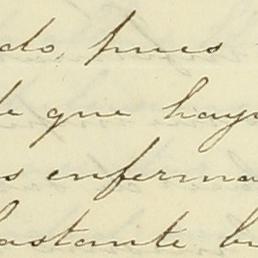 do, pues
de que haya
s enferma
bastante bu